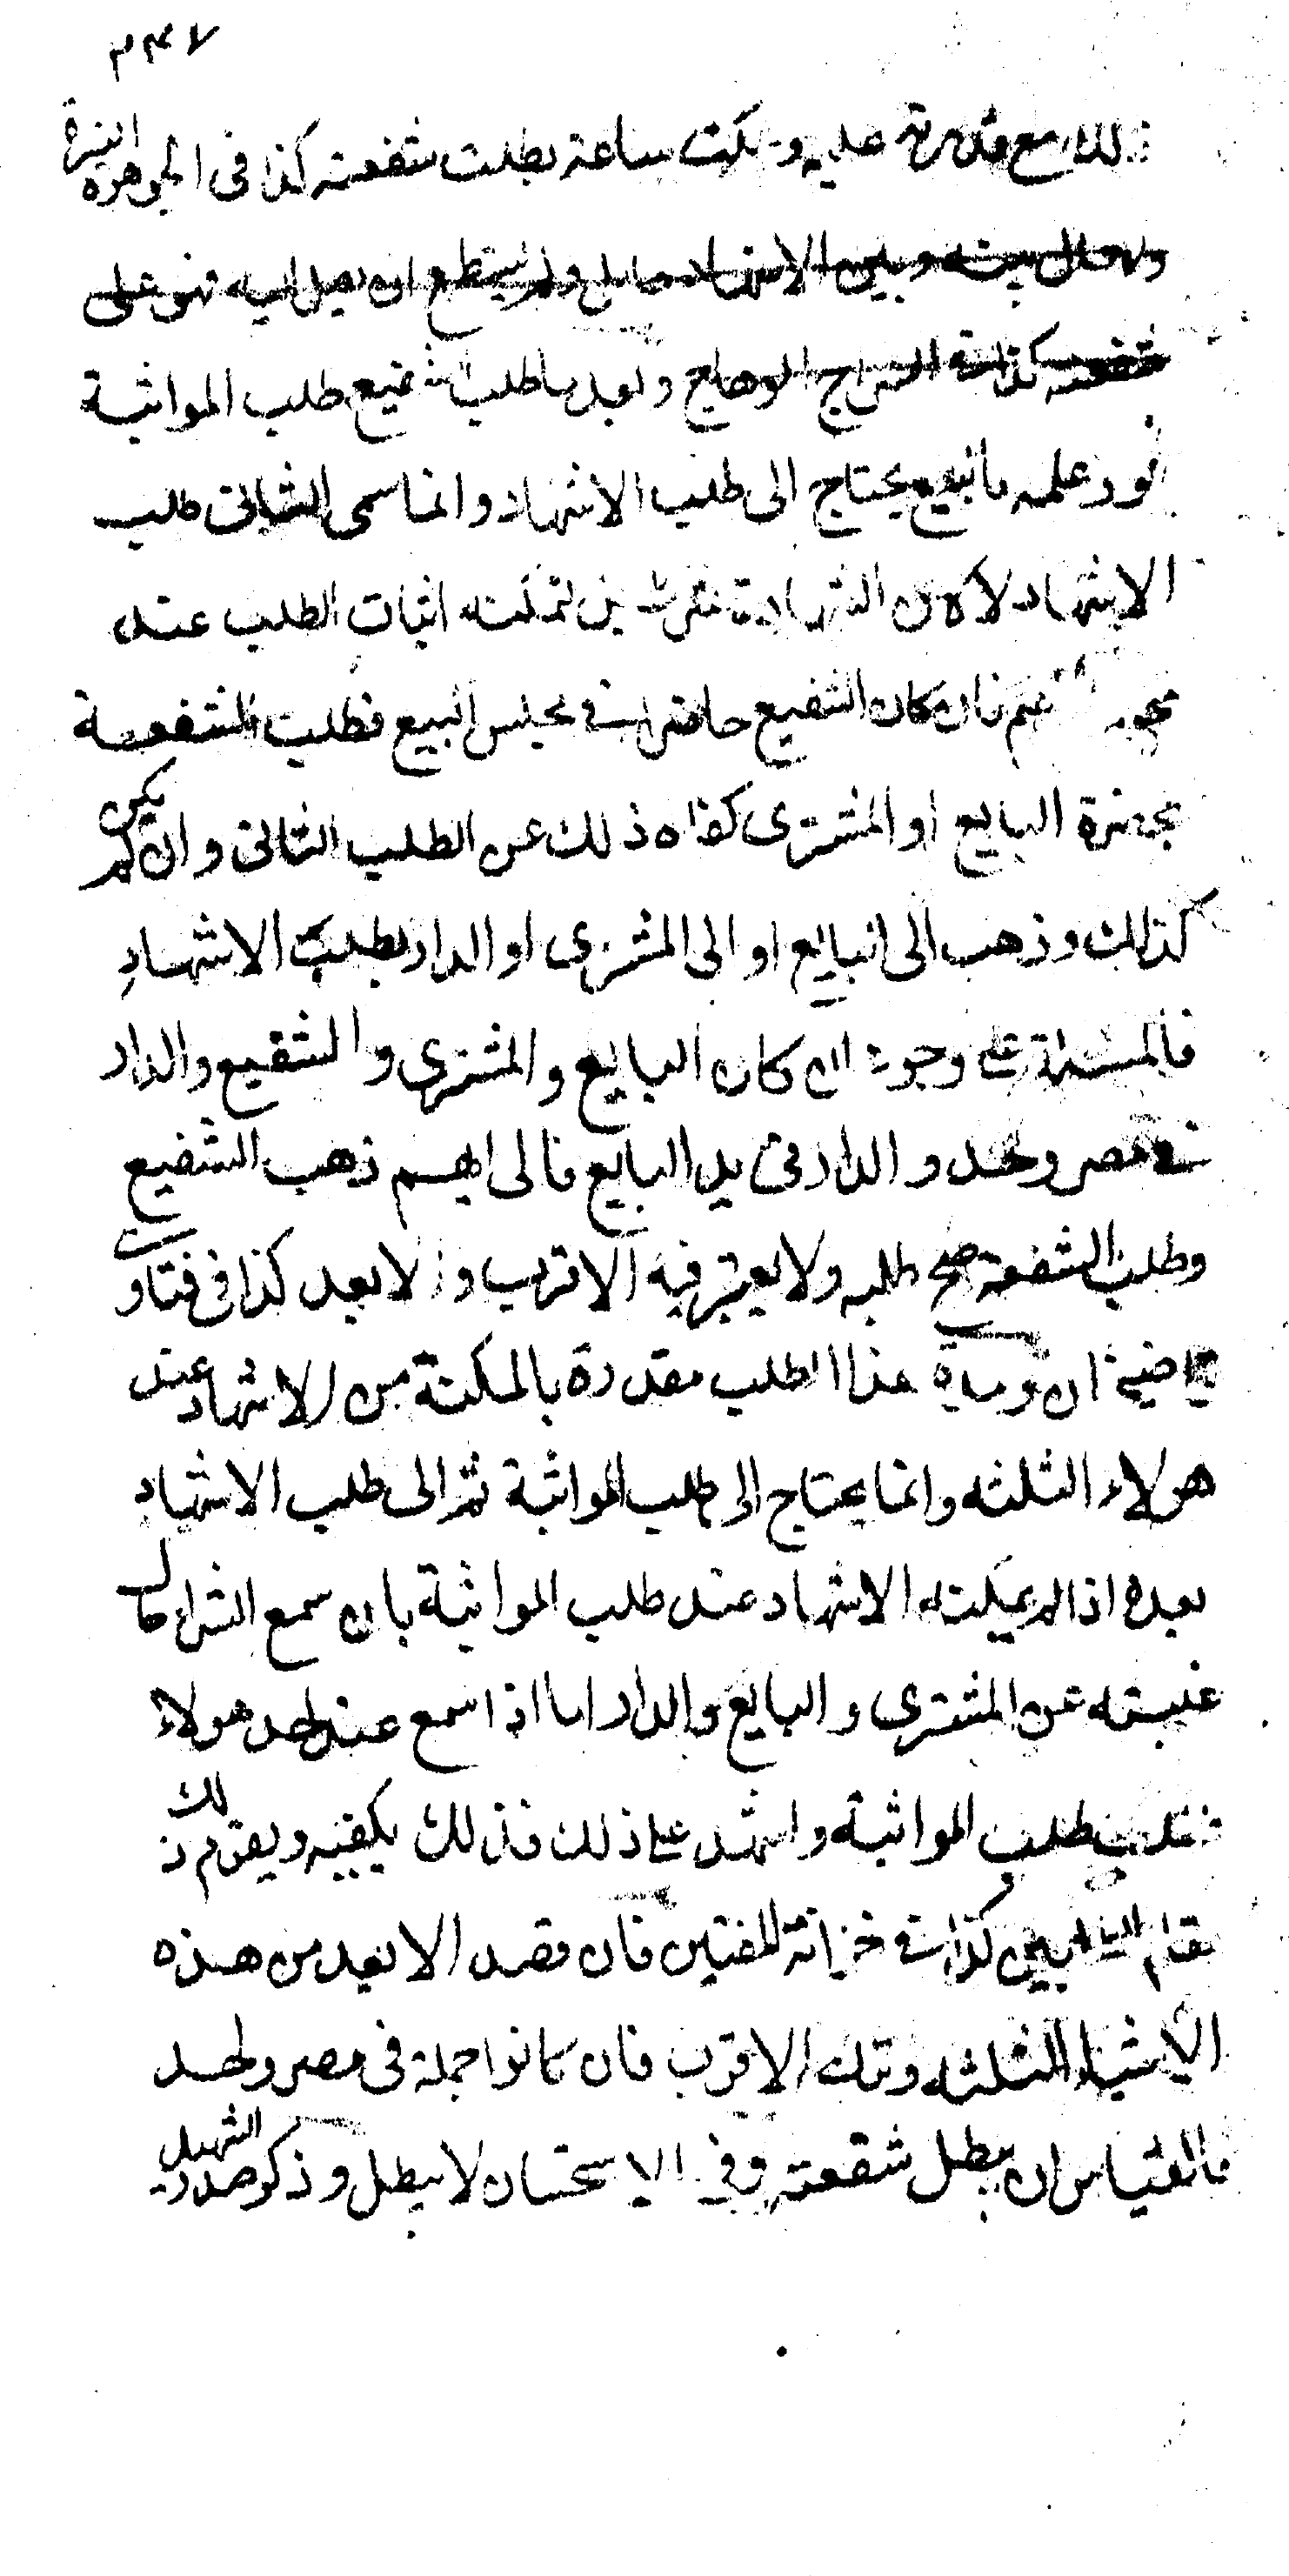 ٢٤٧
ذلك مع قدرته عليه وسكت ساعة بطلت شفعته كذا فى الجوهرة النيرة
ولو حال بينه وبين الاشهاد حايل ولم يستطع ان يصل اليه فهو على
شفعته كذا فى السراج الوهاج وبعد ما طلب الشفيع طلب المواثبة
فور علمه بالبيع يحتاج الى طلب الاشهاد وانما سمى الثانى طلب
الاشهاد لا لان الشهادة شرط بل لتمكنه اثبات الطلب عند
جحود الخصم فان كان الشفيع حاضرا فى مجلس البيع فطلب الشفعة
بحضرة البايع او المشترى كفاه ذلك عن الطلب الثانى وان لم يكن
كذلك وذهب الى البايع او الى المشترى او الدار بطلب الاشهاد
فالمسئلة على وجوه ان كان البايع والمشترى والشفيع والدار
فى مصر واحد والدار فى يد البايع فالى ايهم ذهب الشفيع
وطلب الشفعة صح طلبه ولا يعتبر فيه الاقرب والابعد كذا فى فتاوى
قاضيخان ومدة هذا الطلب مقدرة بالمكنة من الاشهاد عند
هولاء الثلثه وانما يحتاج الى طلب المواثبة ثم الى طلب الاشهاد
بعده اذا لم يمكنه الاشهاد عند طلب المواثبة بان سمع الشراء حال
غيبته عن المشترى والبايع والدار اما اذا سمع عند احد هولاء
فطلب المواثبة واشهد على ذلك فذلك يكفيه ويقوم ذلك
مقام الطلبين كذا فى خزانة المفتين فان قصد الابعد من هذه
الاشياء الثلثه وترك الاقرب فان كانوا جملة فى مصر واحد
فالقياس ان يبطل شفعته وفى الاستحسان لا يبطل وذكر صدر الشهيد